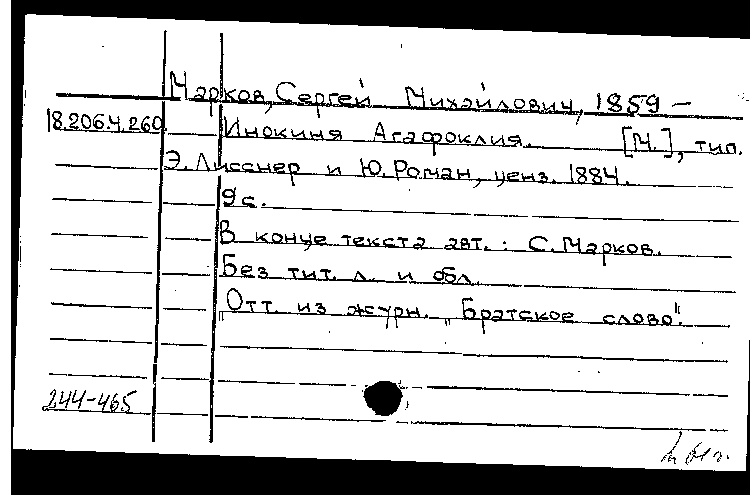 Марков, Сергей Михайлович, 1859 –
18.206.4.260 Инокиня Агафоклия. [М.], тип.
Э. Лисснер и Ю. Роман, ценз. 1884.
9 с.
В конце текста авт.: С. Марков.
Без тит. л. и обл.
Отт. из журн. „Братское слово".
244-465